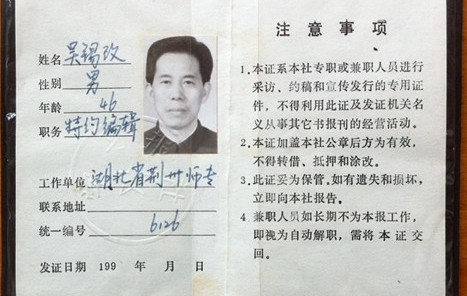 姓名 吴锡改
性别 男
年龄 46
职务 特约编辑
工作单位 湖北省荆州师专
联系地址
统一编号 6126
发证日期 199 年 月 日
注意事项
1.本证系本社专职或兼职人员进行
采访、约稿和宣传发行的专用证
件，不得利用此证及发证机关名
义从事其它书报刊的经营活动。
2.本证加盖本社公章后方为有效，
不得转借、抵押和涂改。
3.此证妥为保管。如有遗失和损坏，
立即向本社报告。
4.兼职人员如长期不为本报工作，
即视为自动解职，需将本证交
回。